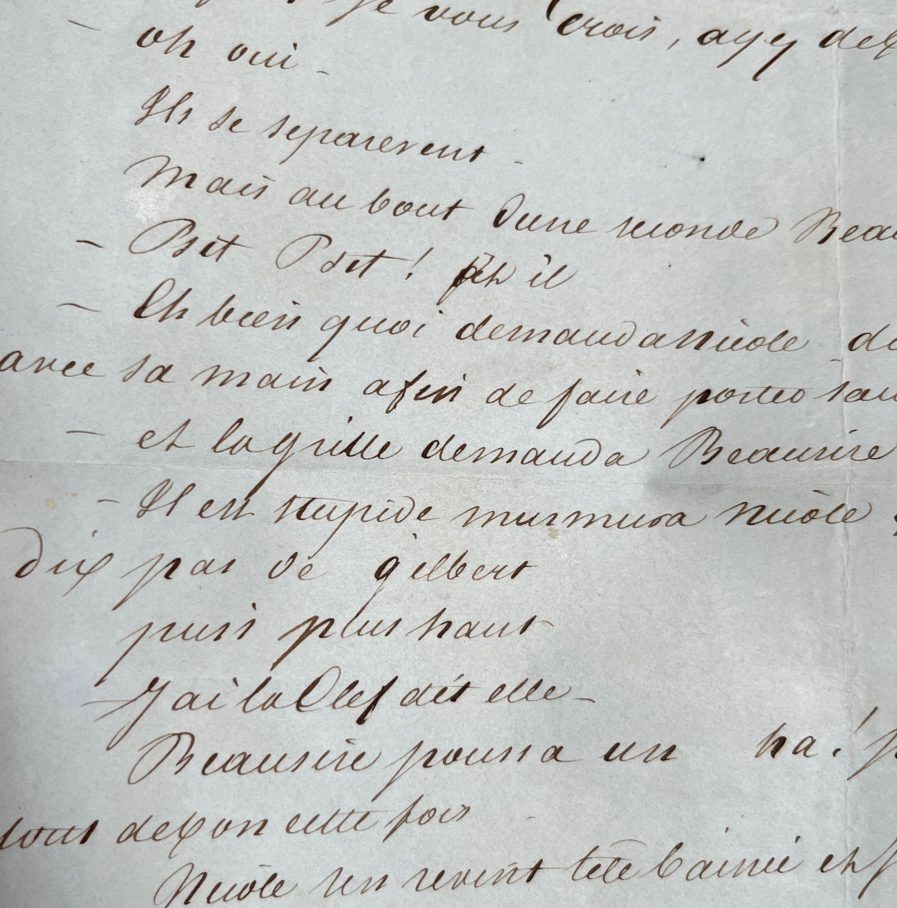 je vous crois, ayy
oh oui -
Ils se separerent -
Mais au bout dune seconde Beau
- Psit Psit ! fit il
- Eh bien quoi demanda Nicole
avec sa main afin de faire porter
- et la grille demanda Beausire
- Il est stupide murmura Nicole
dix pas de gilbert
puis plus haut
- Jai la Clef dit elle -
Beausire poussa un ha !
tout de bon cette fois
Nicole sen revint tete baissée et